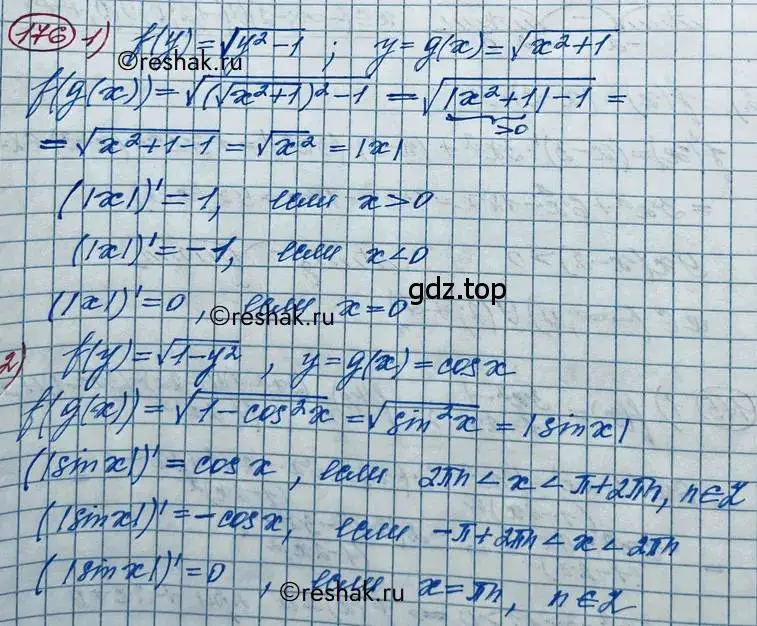 176 1) f(y)=√(y²-1) ; y=g(x)=√(x²+1)
©reshak.ru
f(g(x))=√((√(x²+1))²-1) = √(|x²+1|-1) =
>0
=√(x²+1-1) = √x² = |x|
(|x|)'=1, если x>0
(|x|)'=-1, если x<0
gdz.top
(|x|)'=0, если x=0
©reshak.ru
2) f(y)=√(1-y²), y=g(x)=cosx
f(g(x))=√(1-cos²x)=√(sin²x) = |sinx|
(|sinx|)'=cosx, если 2πn<x<π+2πn, n∈Z
(|sinx|)'=-cosx, если -π+2πn<x<2πn
(|sinx|)'=0, если x=πn, n∈Z
©reshak.ru